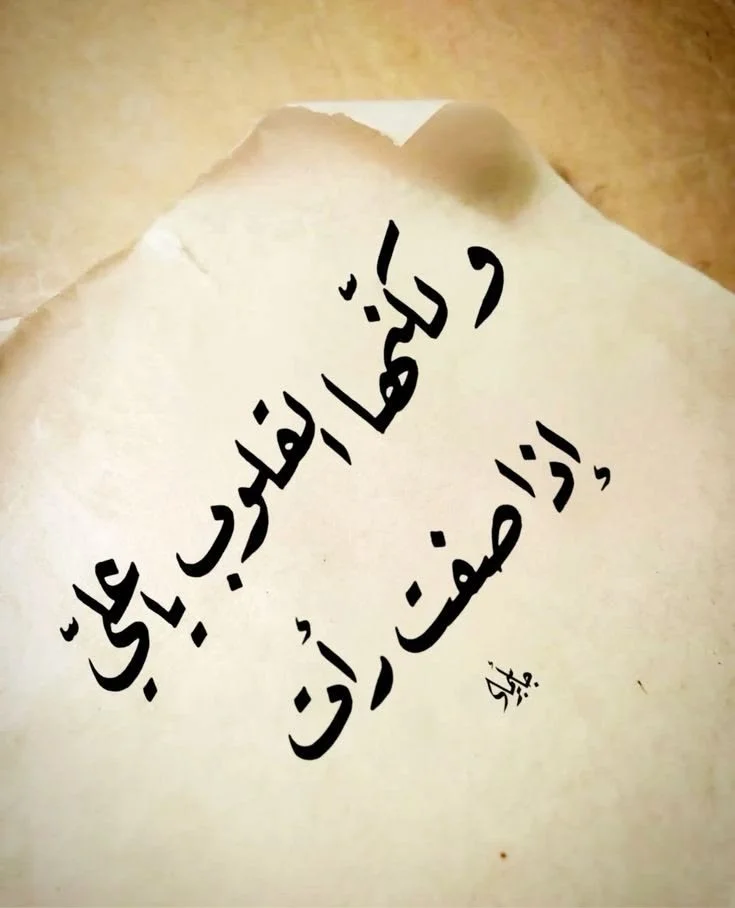 ولكنّها القلوب يا عليّ
إذا صفت رأت